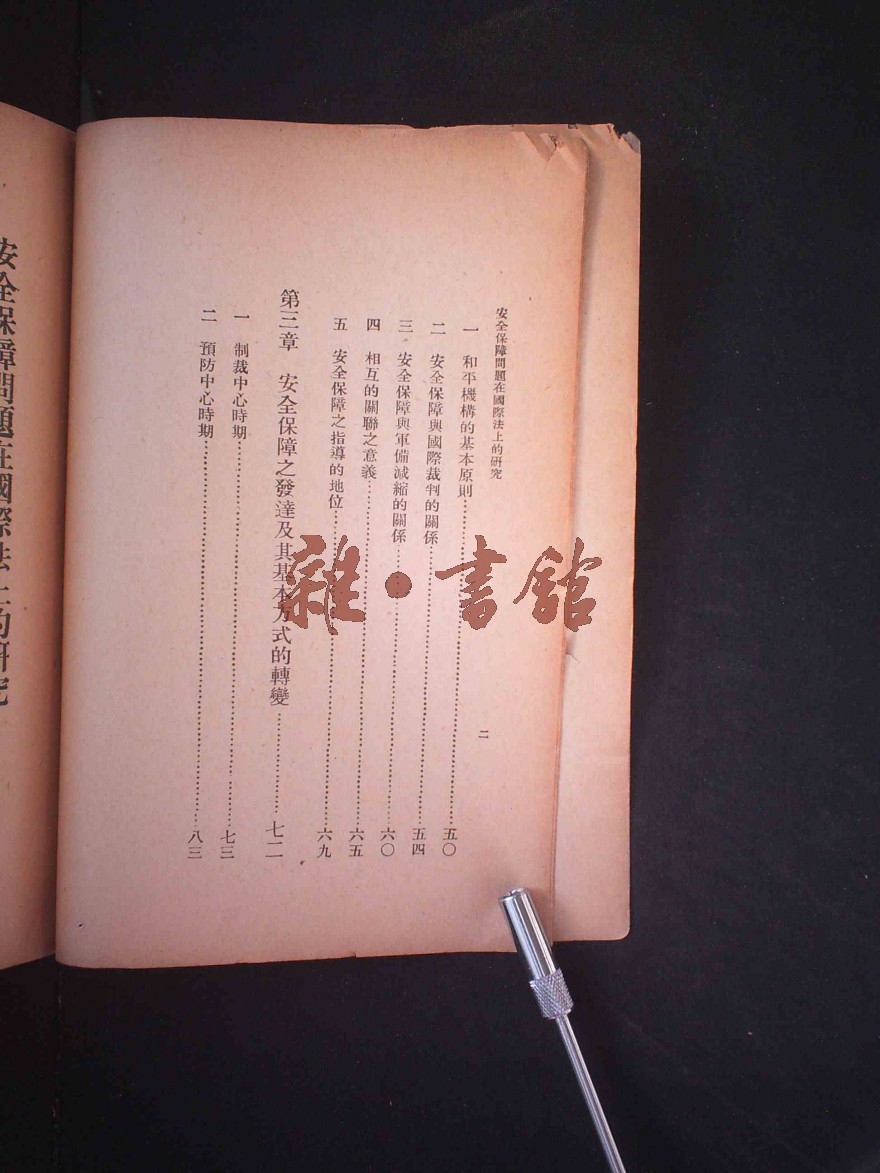 安全保障問題在國際法上的研究
二
一 和平機構的基本原則……五〇
二 安全保障與國際裁判的關係……五四
三 安全保障與軍備減縮的關係……六〇
四 相互的關聯之意義……六五
五 安全保障之指導的地位……六九
第三章 安全保障之發達及其基本方式的轉變……七二
一 制裁中心時期……七三
二 預防中心時期……八三
安全保障問題在國際法上的研究
雜·書館